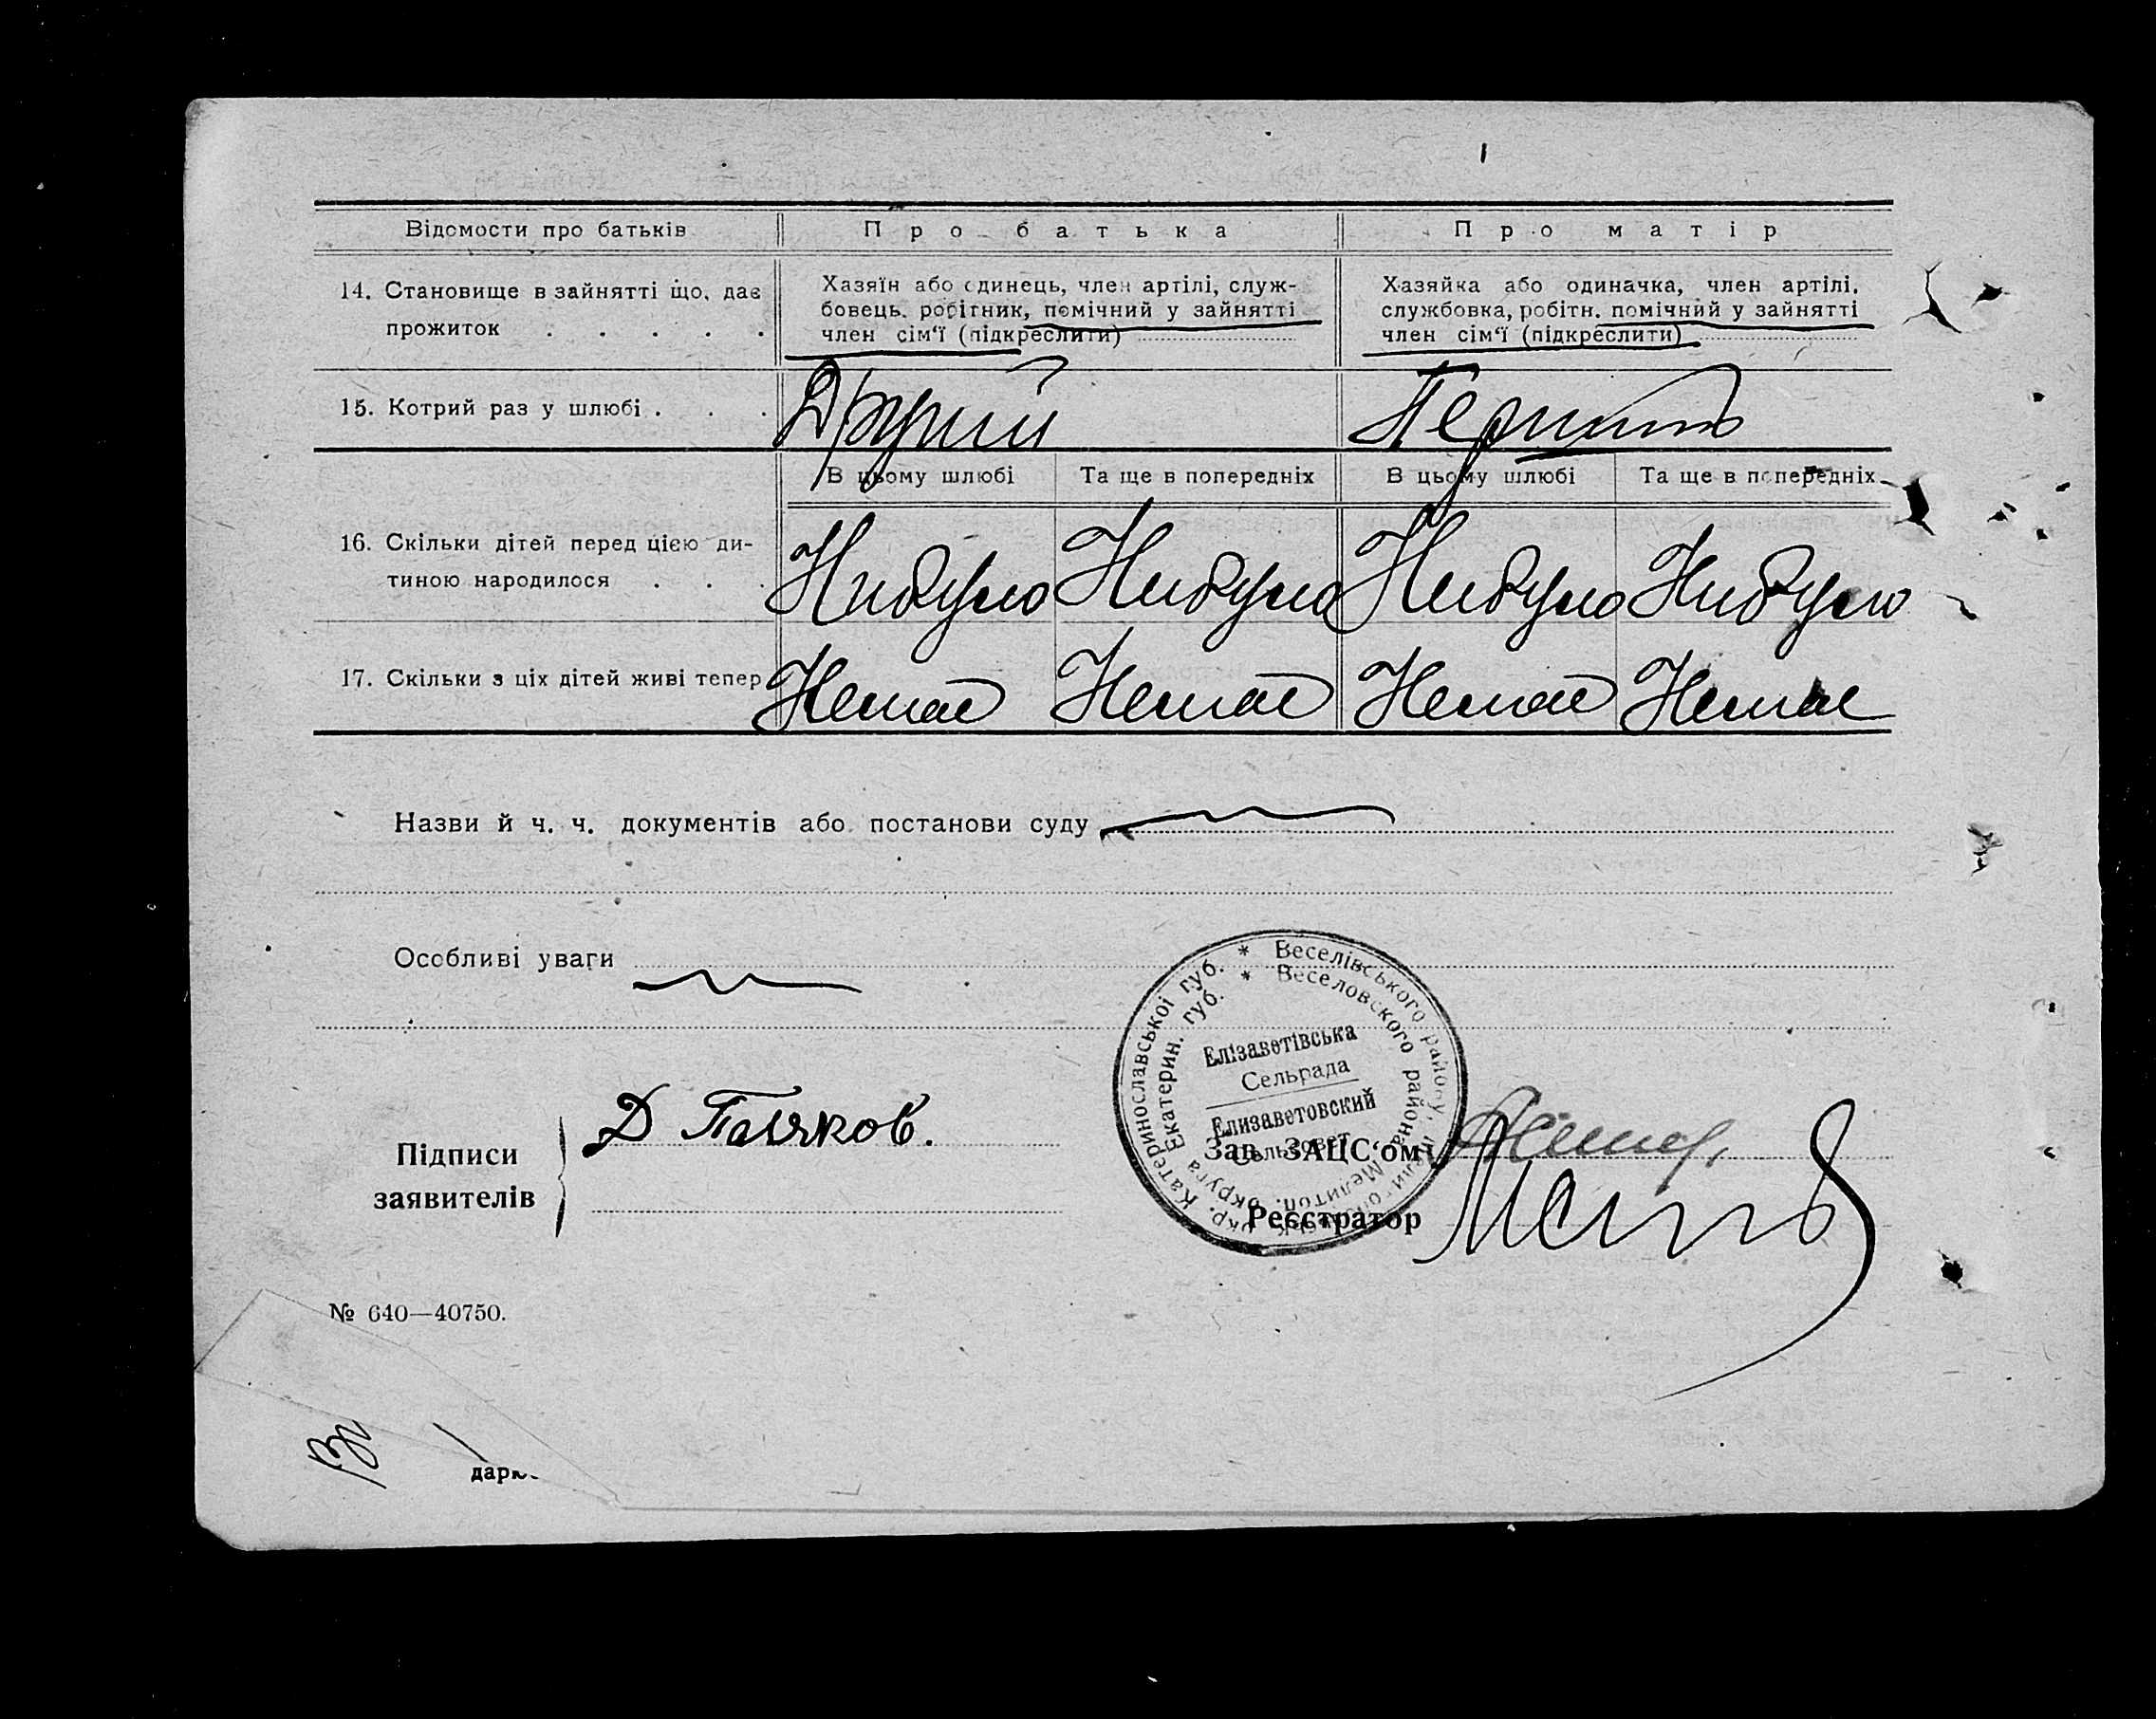 Відомости про батьків
Про батька
Про матір
14. Становище в зайнятті що, дає
прожиток . . . . .
Хазяїн або єдинець, член артілі, служ-
бовець, робітник, помічний у зайнятті
член сім‘ї (підкреслити)
Хазяйка або одиначка, член артілі,
службовка, робітн. помічний у зайнятті
член сім‘ї (підкреслити)
15. Котрий раз у шлюбі . . .
Другий
В цьому шлюбі
Та ще в попередніх
В цьому шлюбі
Та ще в попередніх
16. Скільки дітей перед цією ди-
тиною народилося . . .
Нибуло
Нибуло
Нибуло
Нибуло
17. Скільки з ціх дітей живі тепер
Немає
Немає
Немає
Немає
Назви й ч. ч. документів або постанови суду
Особливі уваги
* Веселівського району, Мелітопільськ. окр. Катеринославської губ.
* Веселовского района Мелитоп. округа Екатерин. губ.
Елізаветівська
Сельрада
Елизаветовский
Сельсовет
Підписи
заявителів
Зав. ЗАЦС‘ом
Реєстратор
№ 640—40750.